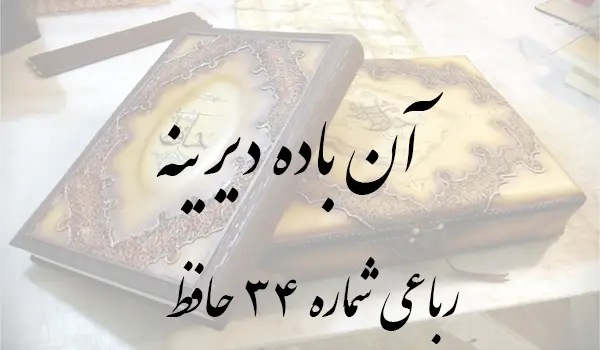 آن باده دیرینه
رباعی شماره ۳۴ حافظ